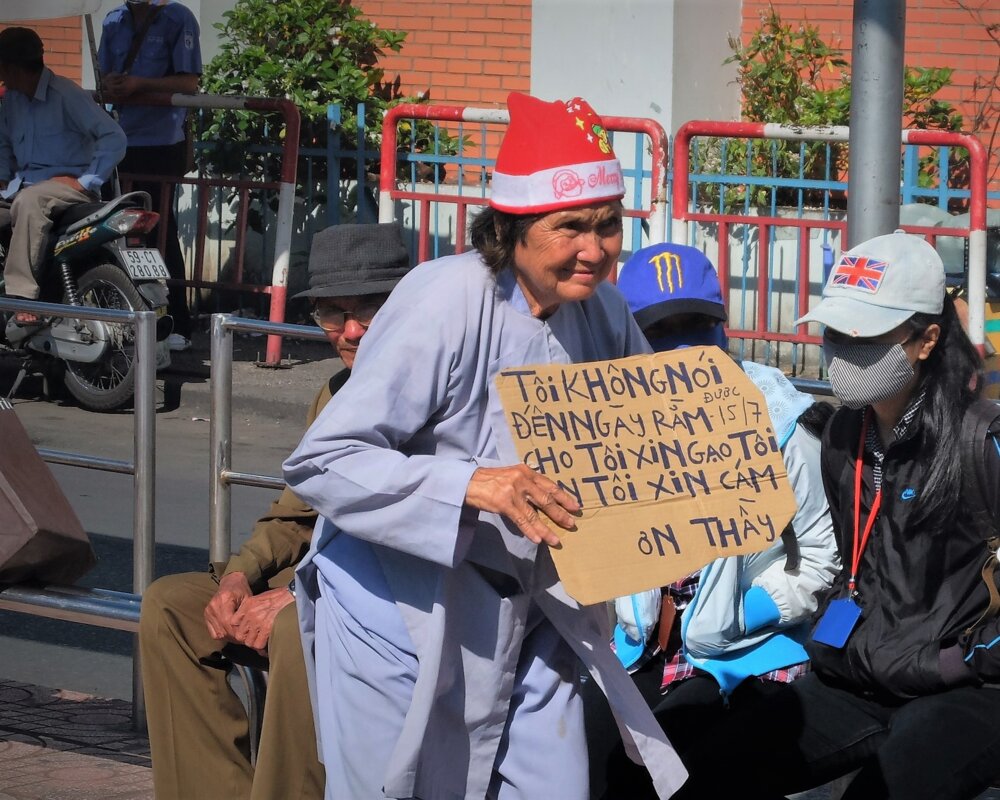 Merry
59-C1
280.88
TÔi KHÔNG NÓI
ĐƯỢC
ĐẾN NGÀY RẰM.15/7
CHO TÔi XiN GẠO TÔi
ĂN TÔi XiN CÁM
ƠN THẦY